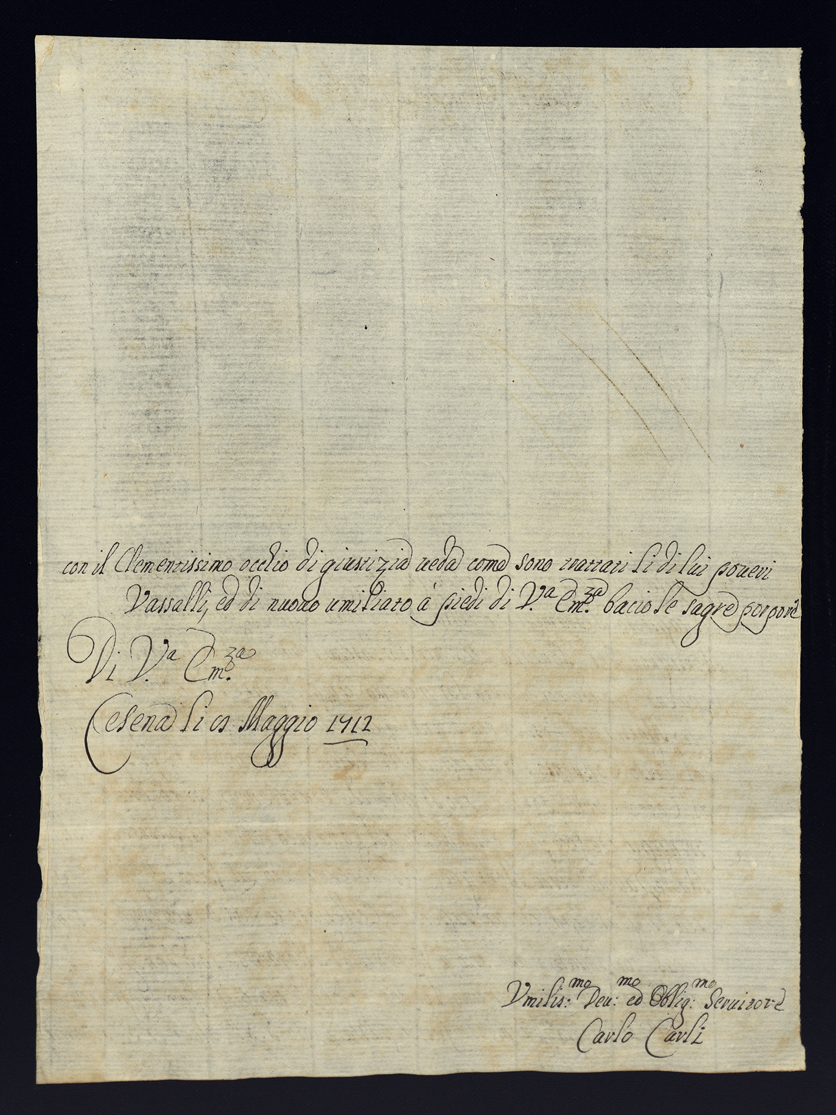 con il Clementissimo occhio di giustizia veda come sono trattati li di lui poveri
Vassalli, ed di nuovo umiliato à piedi di V.ª Em.ᶻᵃ bacio le sagre porpore
Di V.ª Em.ᶻᵃ
Cesena li Maggio 1712
Vmilis:ᵐᵒ Deu:ᵐᵒ ed Oblig:ᵐᵒ Seruitore
Carlo Carli